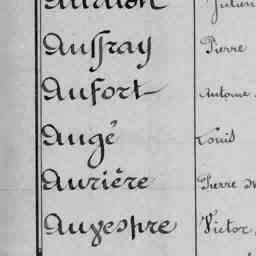 Julien
Auffray Pierre
Aufort Antoine
Augé Louis
Aurière Pierre
Auvespre Victor,